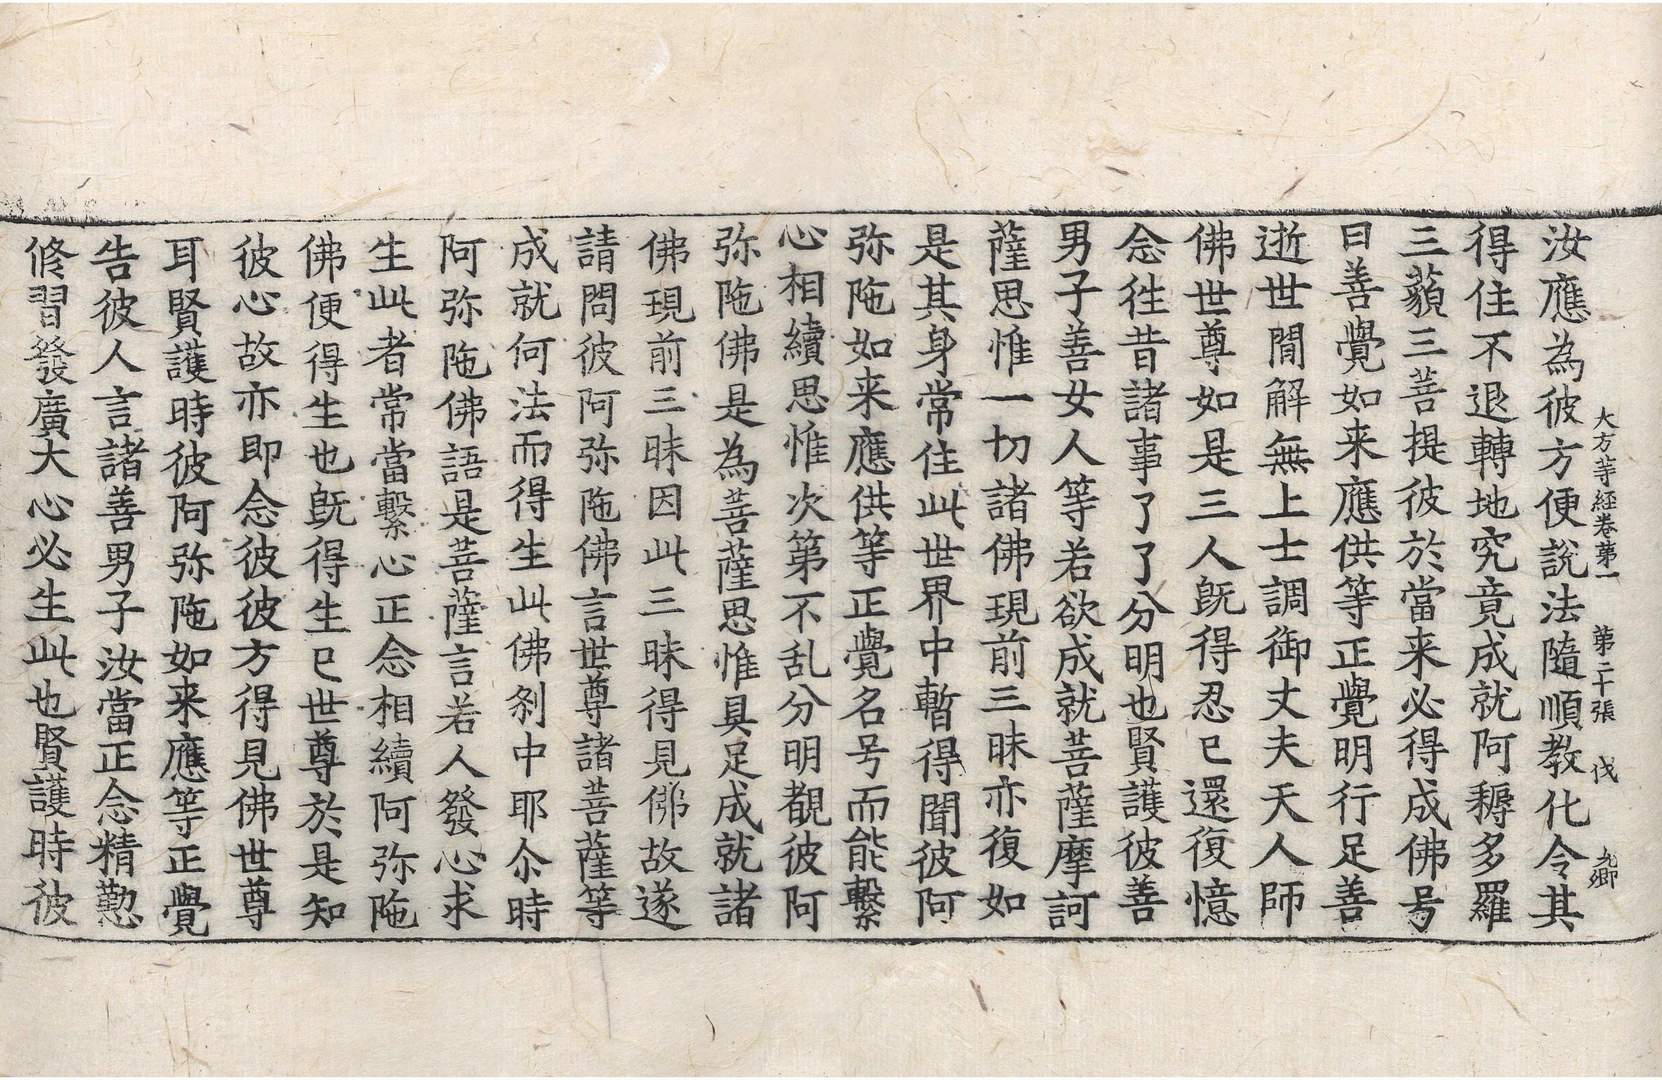 大方等経卷第一　第二十張　伐　九卿
汝應為彼方便說法隨順教化令其
得住不退轉地究竟成就阿耨多羅
三藐三菩提彼於當来必得成佛号
曰善覺如来應供等正覺明行足善
逝世閒解無上士調御丈夫天人師
佛世尊如是三人旣得忍已還復憶
念徃昔諸事了了分明也賢護彼善
男子善女人等若欲成就菩薩摩訶
薩思惟一切諸佛現前三昧亦復如
是其身常住此世界中暫得聞彼阿
弥陁如来應供等正覺名号而能繫
心相續思惟次第不乱分明覩彼阿
弥陁佛是為菩薩思惟具足成就諸
佛現前三昧因此三昧得見佛故遂
請問彼阿弥陁佛言世尊諸菩薩等
成就何法而得生此佛刹中耶尒時
阿弥陁佛語是菩薩言若人發心求
生此者常當繫心正念相續阿弥陁
佛便得生也旣得生已世尊於是知
彼心故亦即念彼彼方得見佛世尊
耳賢護時彼阿弥陁如来應等正覺
告彼人言諸善男子汝當正念精懃
修習發廣大心必生此也賢護時彼